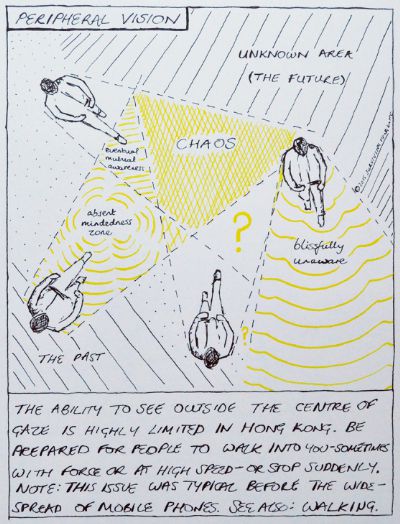 PERIPHERAL VISION
UNKNOWN AREA
(THE FUTURE)
CHAOS
eventual
mutual
awareness
absent
mindedness
zone
?
blissfully
unaware
?
THE PAST
THE ABILITY TO SEE OUTSIDE THE CENTRE OF
GAZE IS HIGHLY LIMITED IN HONG KONG. BE
PREPARED FOR PEOPLE TO WALK INTO YOU-SOMETIMES
WITH FORCE OR AT HIGH SPEED-OR STOP SUDDENLY.
NOTE: THIS ISSUE WAS TYPICAL BEFORE THE WIDE-
SPREAD OF MOBILE PHONES. SEE ALSO: WALKING.